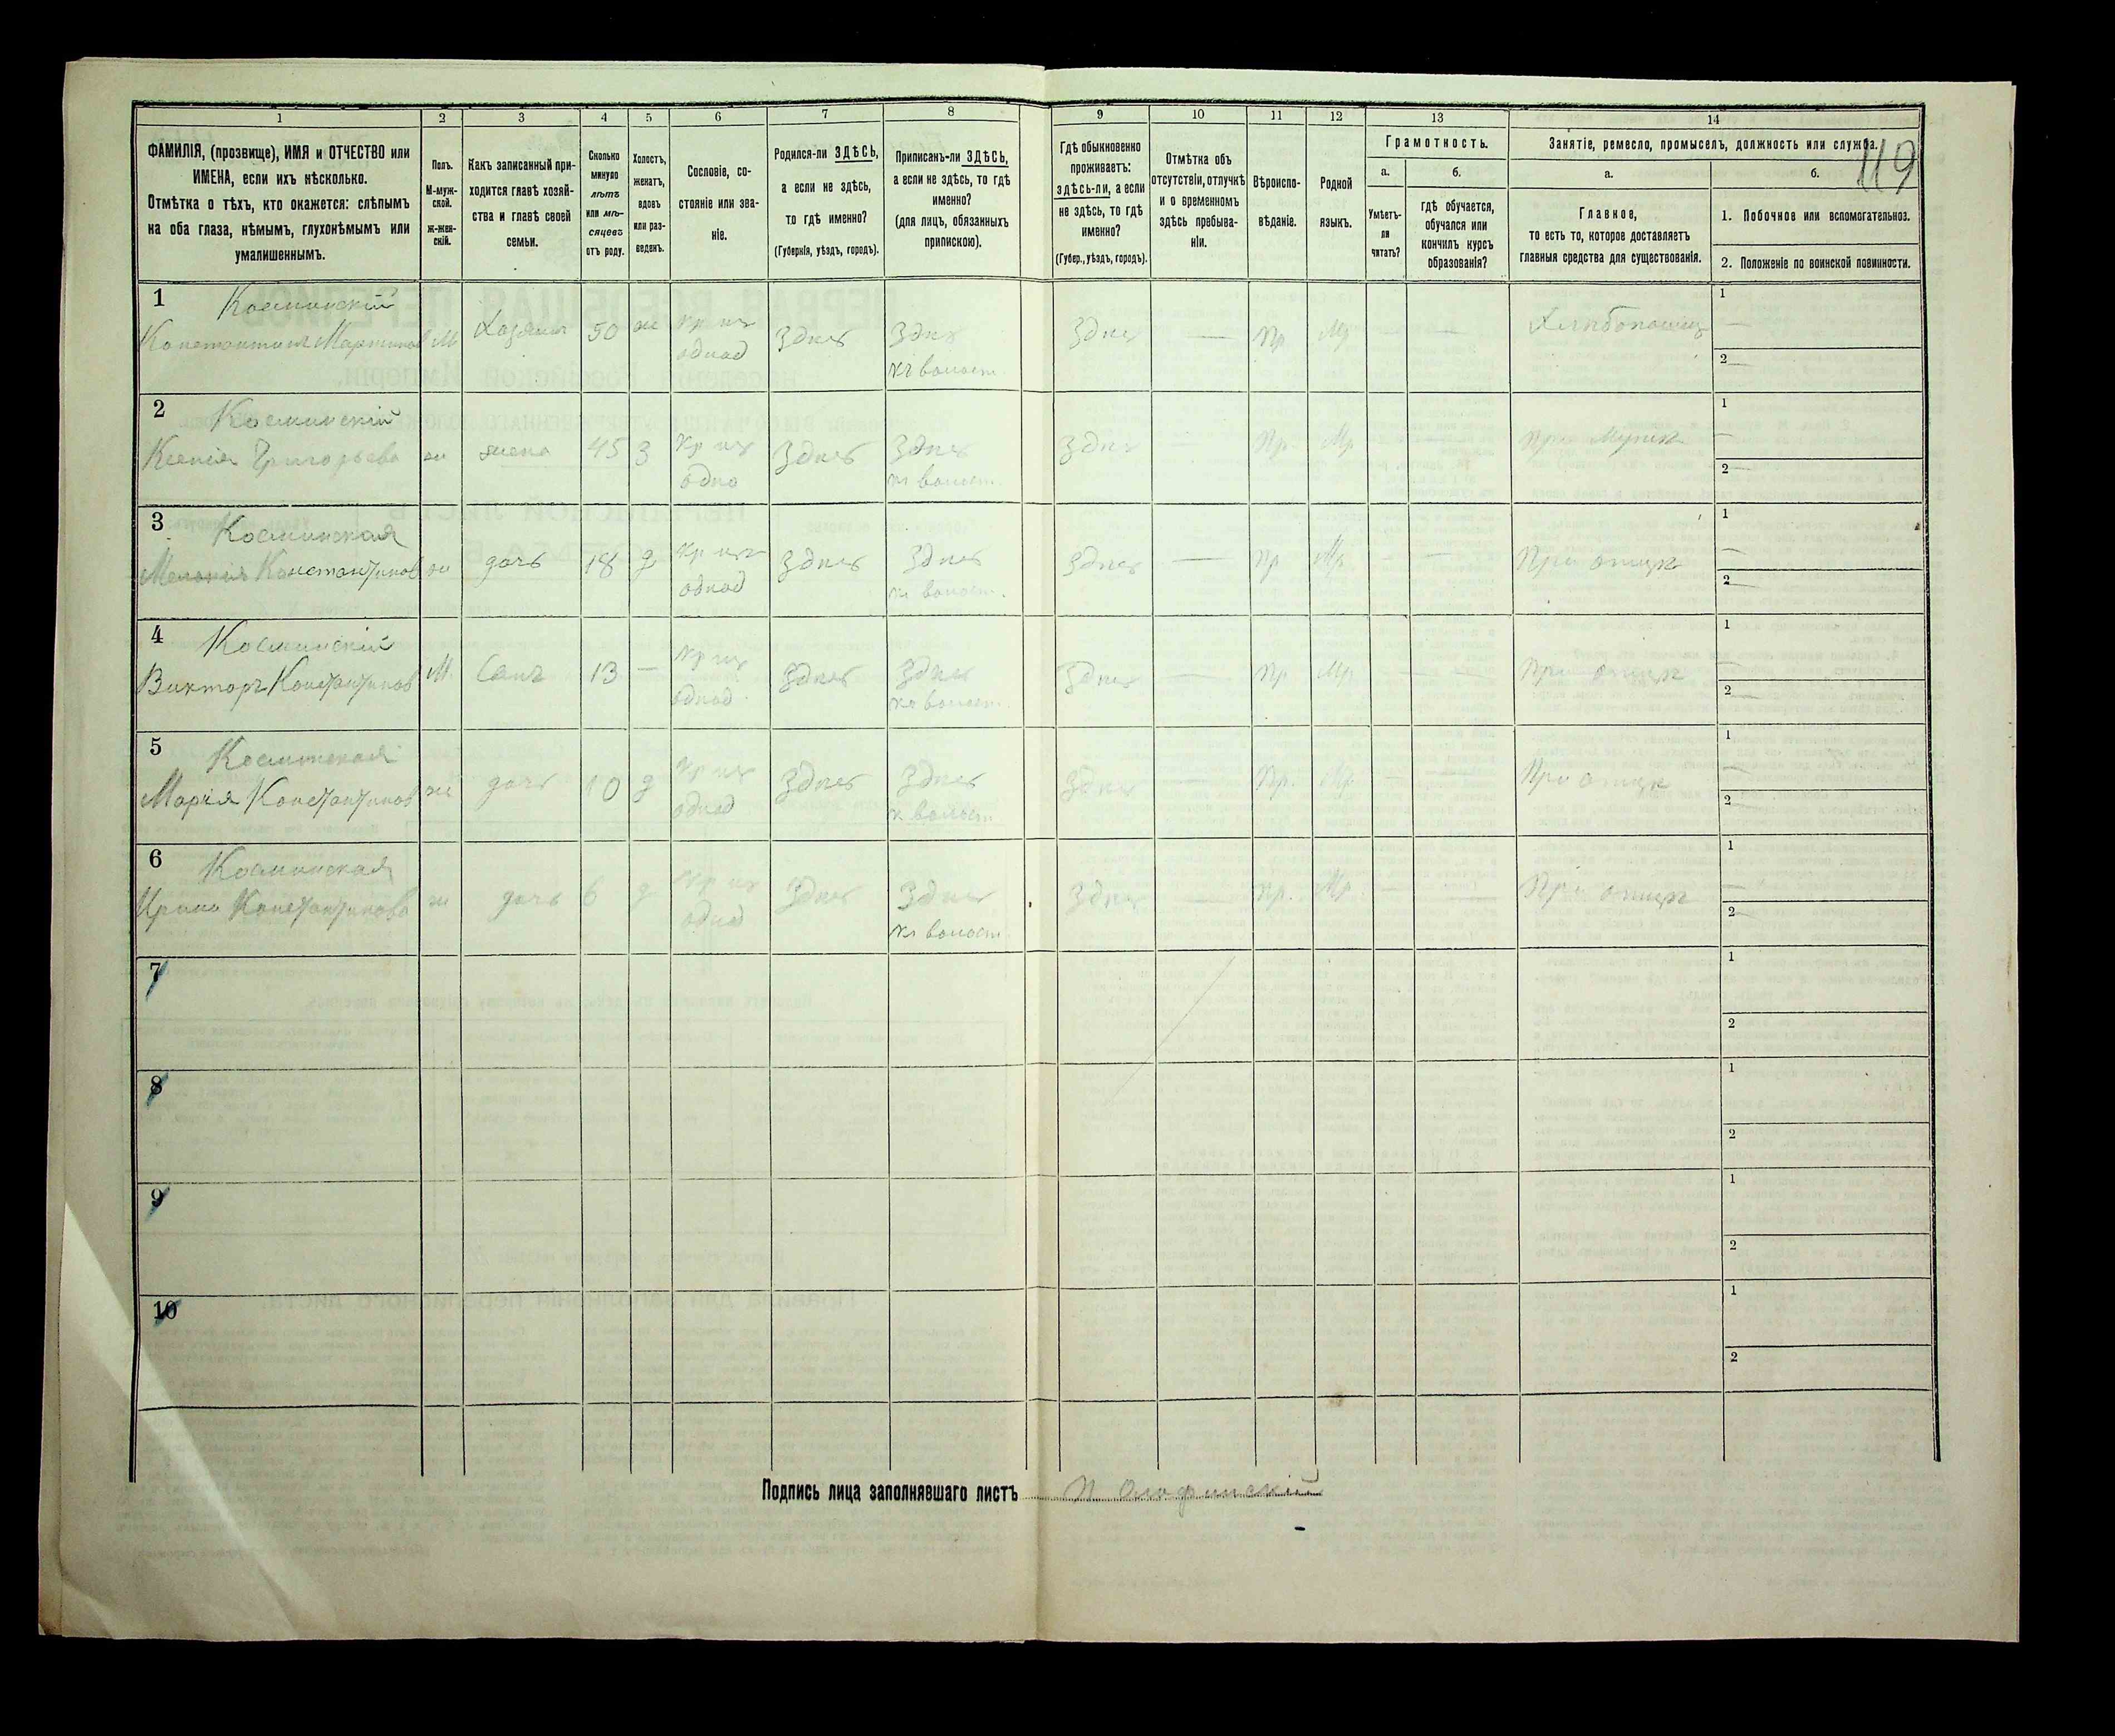 119
1 2 3 4 5 6 7 8 9 10 11 12 13 14
ФАМИЛІЯ, (прозвище), ИМЯ и ОТЧЕСТВО или
ИМЕНА, если ихъ нѣсколько.
Отмѣтка о тѣхъ, кто окажется: слѣпымъ
на оба глаза, нѣмымъ, глухонѣмымъ или
умалишеннымъ.
Полъ.
М-муж-
ской.
ж-жен-
скій.
Какъ записанный при-
ходится главѣ хозяй-
ства и главѣ своей
семьи.
Сколько
минуло
лѣтъ
или мѣ-
сяцевъ
отъ роду.
Холостъ,
женатъ,
вдовъ
или раз-
веденъ.
Сословіе, со-
стояніе или зва-
ніе.
Родился-ли ЗДѢСЬ,
а если не здѣсь,
то гдѣ именно?
(Губернія, уѣздъ, городъ).
Приписанъ-ли ЗДѢСЬ,
а если не здѣсь, то гдѣ
именно?
(для лицъ, обязанныхъ
припискою).
Гдѣ обыкновенно
проживаетъ:
здѣсь-ли, а если
не здѣсь, то гдѣ
именно?
(Губер., уѣздъ, городъ).
Отмѣтка объ
отсутствіи, отлучкѣ
и о временномъ
здѣсь пребыва-
ніи.
Вѣроиспо-
вѣданіе.
Родной
языкъ.
Грамотность.
а.
Умѣетъ-
ли
читать?
б.
гдѣ обучается,
обучался или
кончилъ курсъ
образованія?
Занятіе, ремесло, промыселъ, должность или служба.
а.
Главное,
то есть то, которое доставляетъ
главныя средства для существованія.
б.
1. Побочное или вспомогательное.
2. Положеніе по воинской повинности.
1 Косминскій
Константинъ Мартинов М Хазяинъ 50 ж Кр изъ однод Здѣсь Здѣсь къ волост. Здѣсь — Пр Мр — — Хлѣбопашец 1 — 2 —
2 Косминскій
Ксенія Григорьева ж жена 45 З Кр изъ одно Здѣсь Здѣсь къ волост. Здѣсь — Пр. Мр — — при Мужѣ 1 — 2 —
3 Косминская
Меланія Константинов ж дочь 18 д Кр изъ однод Здѣсь Здѣсь къ волост. Здѣсь — Пр Мр — — При отцѣ 1 — 2 —
4 Косминскій
Викторъ Константинов М. Сынъ 13 — Кр изъ однод. Здѣсь Здѣсь къ волост. Здѣсь — Пр Мр. — — При отцѣ 1 — 2 —
5 Косминская
Марія Константинов ж дочь 10 д Кр изъ однод Здѣсь Здѣсь к волост. Здѣсь — Пр. Мр. — — При отцѣ 1 — 2 —
6 Косминская
Ирина Константинова ж дочь 6 д Кр изъ однод Здѣсь Здѣсь къ волост. Здѣсь — Пр. Мр. — — При отцѣ 1 — 2 —
7 1 2
8 1 2
9 1 2
10 1 2
Подпись лица заполнявшаго листъ